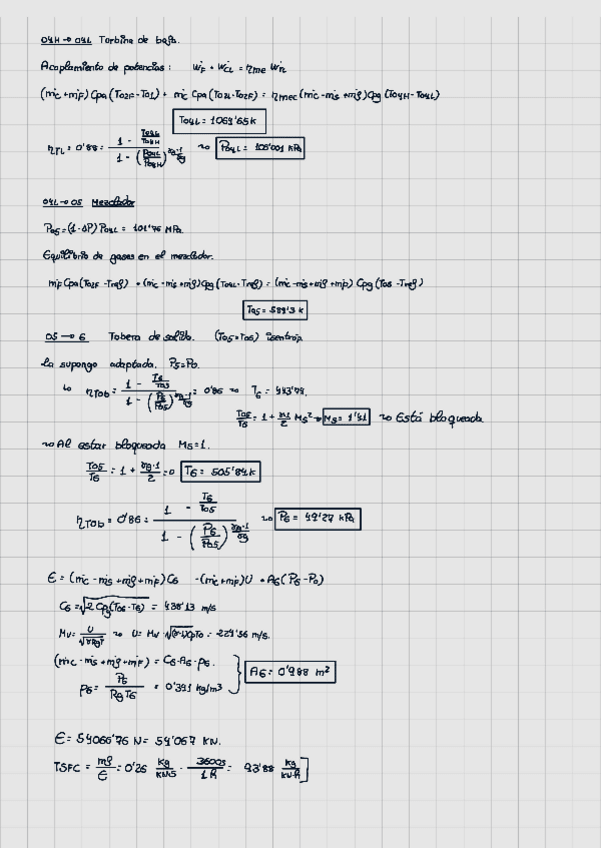 04H → 04L Turbina de baja.
Acoplamiento de potencias: ẆF + ẆCL = ηme ẆTL
(ṁc+ṁF) Cpa (T02F-T01) + ṁc Cpa (T02L-T02F) = ηmec (ṁc-ṁs+ṁf) Cpg (T04H-T04L)
T04L = 1069'65K
ηTL = 0'88 = (1 - T04L/T04H) / (1 - (P04L/P04H)^((γg-1)/γg)) ↝ P04L = 106'001 kPa
04L → 05 Mezclador
P05 = (1-ΔP) P04L = 101'76 MPa.
Equilibrio de gases en el mezclador.
ṁF Cpa (T02F - Tref) + (ṁc - ṁs + ṁf) Cpg (T04L - Tref) = (ṁc - ṁs + ṁf + ṁF) Cpg (T05 - Tref)
T05 = 589'3 K
05 → 6 Tobera de salida. (T05 = T06) isentróp
La supongo adaptada. P5 = P0.
↳ ηTob = (1 - T6/T05) / (1 - (P6/P05)^((γg-1)/γg)) = 0'86 ↝ T6 =
T05/T6 = 1 + (γg-1)/2 M5² → M5 = 1'41 ↝ Está bloqueada.
↝ Al estar bloqueada M5 = 1.
T05/T6 = 1 + (γg-1)/2 → T6 = 505'84K
ηTob = 0'86 = (1 - T6/T05) / (1 - (P6/P05)^((γg-1)/γg)) ↝ P6 = 49'27 kPa
E = (ṁc - ṁs + ṁf + ṁF) C6 - (ṁc + ṁF) U + A6 (P6 - P0)
C6 = √(2 Cpg (T06 - T6)) = 438'13 m/s
Mv = U/√(γRgT) ↝ U = Mv · T0 = 221'36 m/s.
(ṁc - ṁs + ṁf + ṁF) = C6 · A6 · ρ6.
ρ6 = P6/(Rg T6) = 0'341 kg/m3
A6 = 0'988 m²
E = 54066'76 N = 54'067 KN.
TSFC = ṁf/E = 0'26 kg/KNS · 3600s/1h = 93'88 kg/KN·h